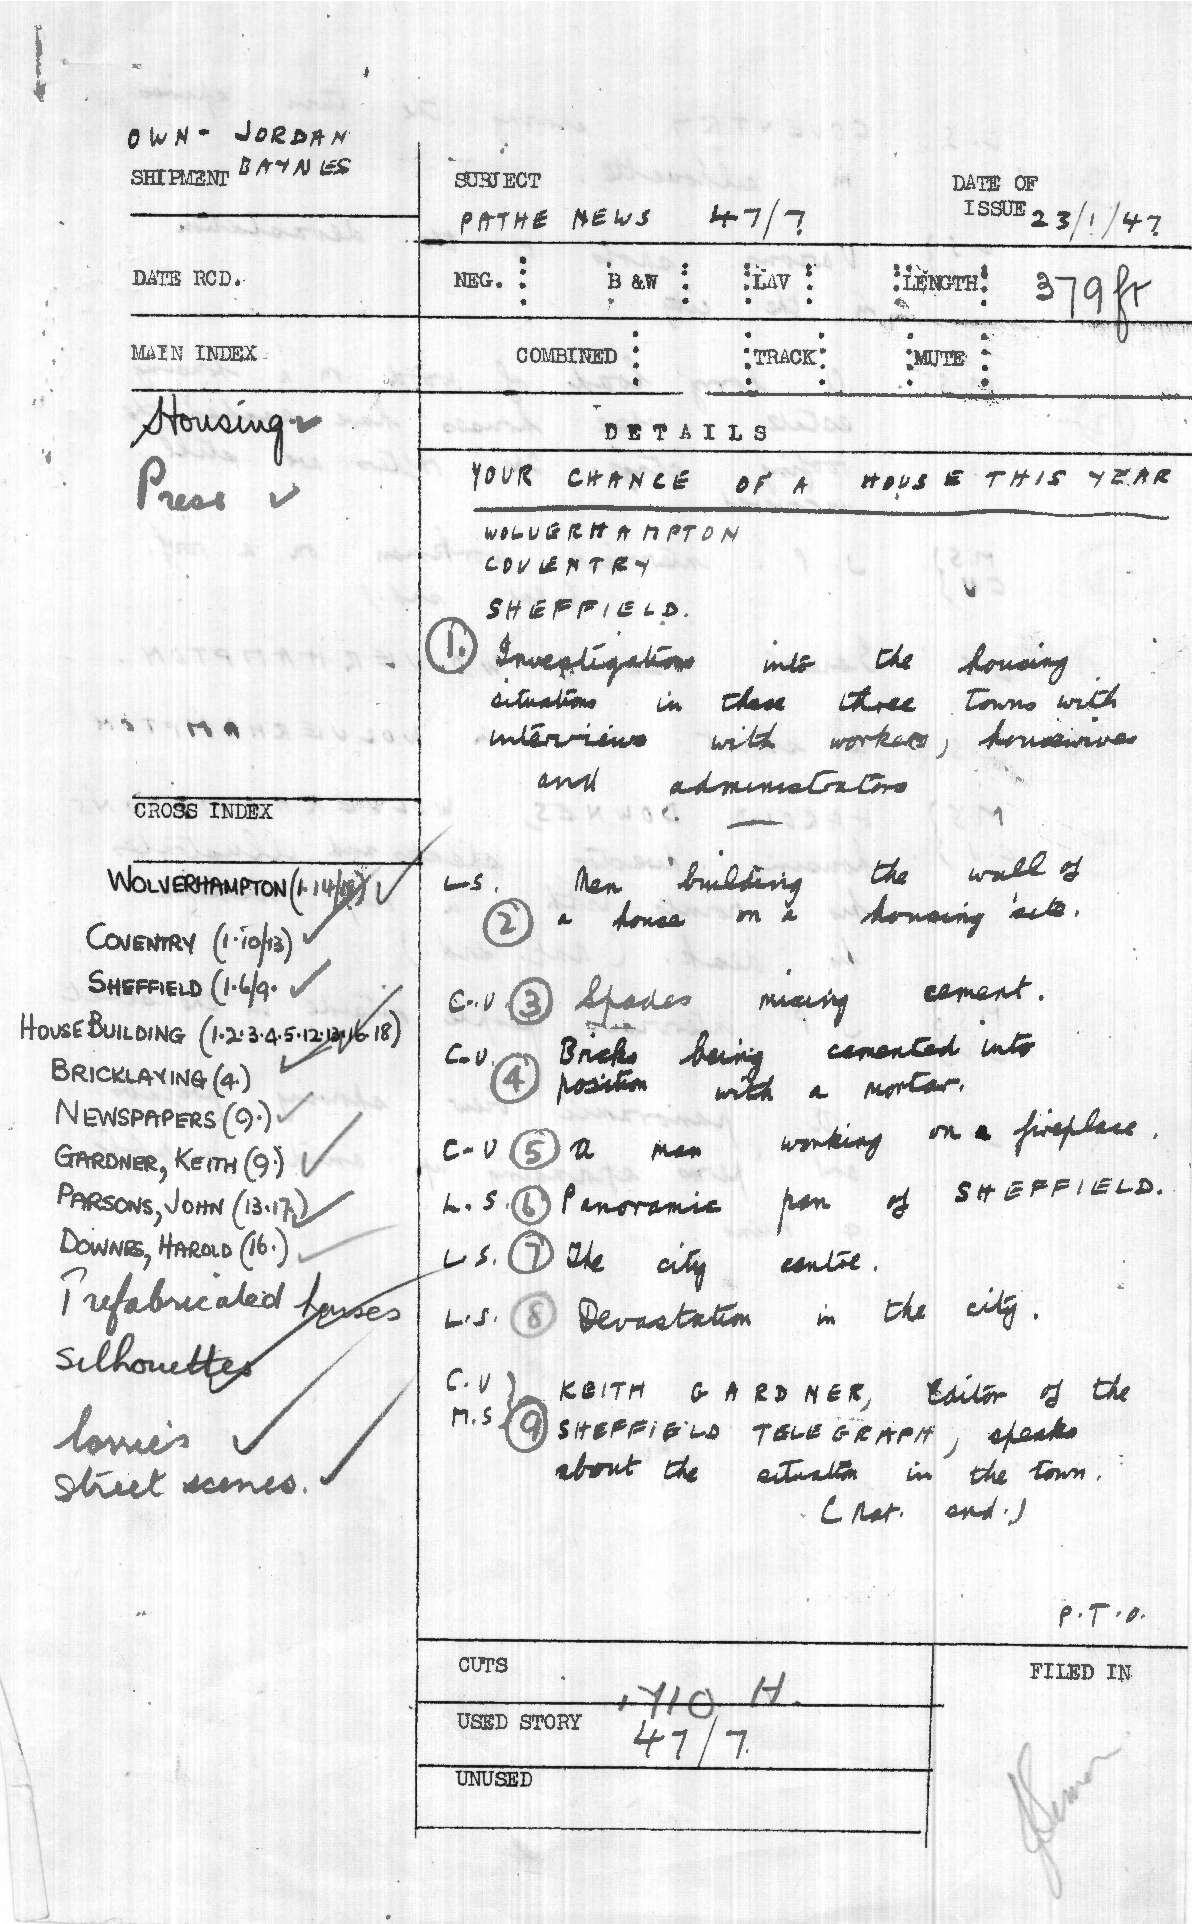 OWN - JORDAN
BAYNES
SHIPMENT
SUBJECT
PATHE NEWS 47/7
DATE OF
ISSUE 23/1/47
DATE RCD.
NEG. B &W LAV LENGTH 379 ft
MAIN INDEX
COMBINED TRACK MUTE
Housing
Press
DETAILS
YOUR CHANCE OF A HOUSE THIS YEAR
WOLVERHAMPTON
COVENTRY
SHEFFIELD.
1. Investigations into the housing
situations in these three towns with
interviews with workers, housewives
and administrators
CROSS INDEX
WOLVERHAMPTON
COVENTRY (1.10/13)
SHEFFIELD (1.6/9.
HOUSE BUILDING (1.2.3.4.5.12.13.16.18)
BRICKLAYING (4.)
NEWSPAPERS (9.)
GARDNER, KEITH (9.)
PARSONS, JOHN (13.17.)
DOWNES, HAROLD (16.)
Prefabricated houses
Silhouettes
lorries
Street scenes.
L.S. 2 Men building the wall of
a house on a housing site.
C.U 3 Spades mixing cement.
C.U. 4 Bricks being cemented into
position with a mortar.
C-U 5 A man working on a fireplace.
L.S. 6 Panoramic pan of SHEFFIELD.
L.S. 7 The city centre.
L.S. 8 Devastation in the city.
C.U
M.S 9 KEITH GARDNER, Editor of the
SHEFFIELD TELEGRAPH, speaks
about the situation in the town.
(Nat. snd.)
P.T.O.
CUTS
FILED IN
USED STORY 47/7.
UNUSED